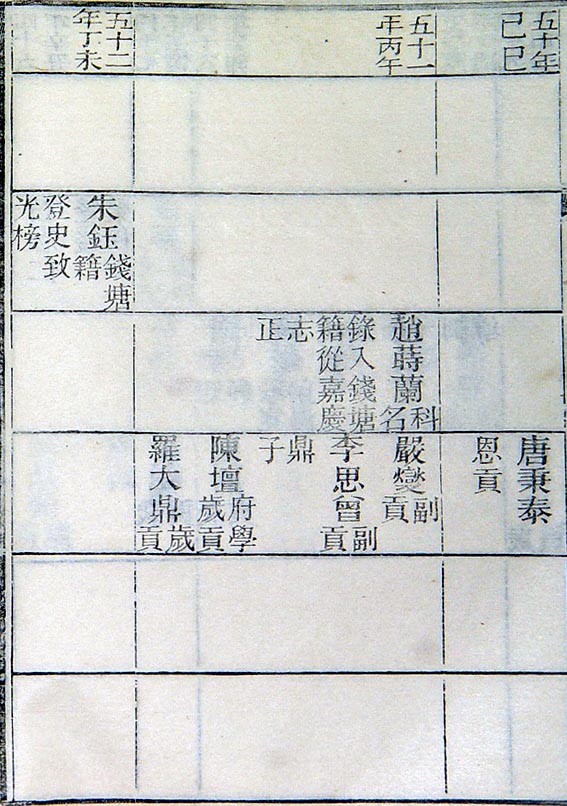 五十年
己巳
唐秉泰
恩貢
五十一
年丙午
趙蒔蘭科
名
錄入錢塘
籍從嘉慶
志
正
嚴燮副
貢
李思曾副
貢
鼎
子
陳壇府學
歲貢
羅大鼎歲
貢
五十二
年丁未
朱鈺錢塘
籍
登史致
光榜